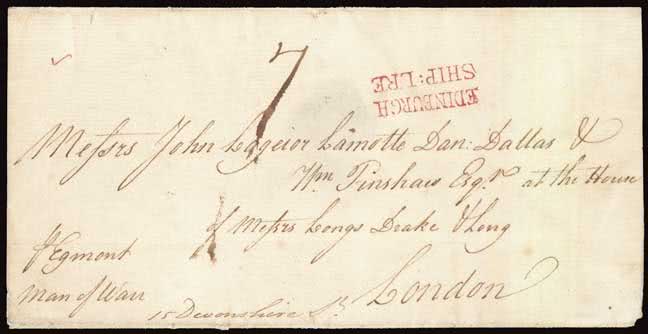 7
EDINBURGH
SHIP:LRE
Messrs John Lagier Lamotte Dan: Dallas &
Wm Finshaw Esqr. at the House
of Messrs Longs Drake & Long
London
p Egmont
Man of Warr
15 Devonshire St